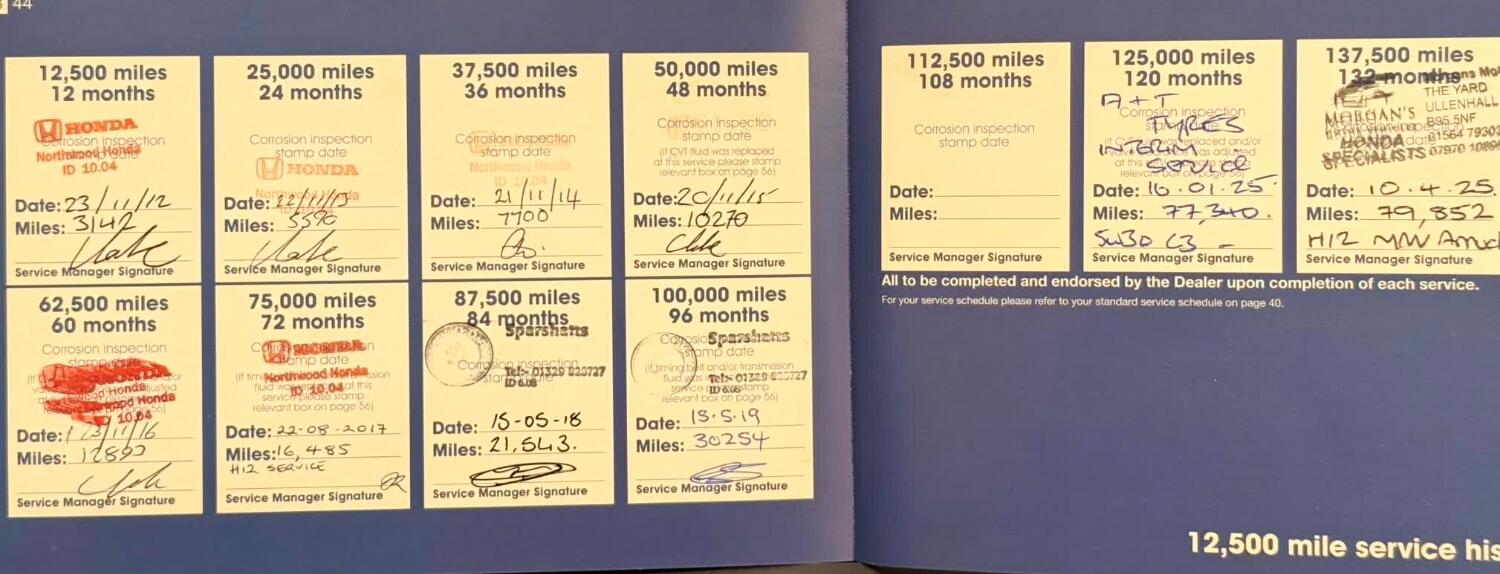 44
12,500 miles
12 months
HONDA
Corrosion inspection
stamp date
Northwood Honda
ID 10.04
Date: 23/11/12
Miles: 3142
Service Manager Signature
25,000 miles
24 months
Corrosion inspection
stamp date
HONDA
Northwood Honda
Date: 22/11/13
Miles: 5590
Service Manager Signature
37,500 miles
36 months
Corrosion inspection
stamp date
Northwood Honda
ID 10.04
Date: 21/11/14
Miles: 7700
Service Manager Signature
50,000 miles
48 months
Corrosion inspection
stamp date
(If CVT fluid was replaced
at this service please stamp
relevant box on page 56)
Date: 20/11/15
Miles: 10270
Service Manager Signature
62,500 miles
60 months
Corrosion inspection
stamp date
Honda
10.04
Date: 23/11/16
Miles:
Service Manager Signature
75,000 miles
72 months
Corrosion inspection
stamp date
HONDA
Northwood Honda
ID 10.04
service please stamp
relevant box on page 56)
Date: 22-08-2017
Miles: 16,485
H12 SERVICE
Service Manager Signature
87,500 miles
84 months
Sparshatts
Corrosion inspection
stamp date
Tel:- 01329 820727
ID 6.08
Date: 15-05-18
Miles: 21,543.
Service Manager Signature
100,000 miles
96 months
Sparshatts
Corrosion
stamp date
(If timing belt and/or transmission
fluid was
Tel:- 01329 820727
ID 6.08
service please stamp
relevant box on page 56)
Date: 13.5.19
Miles: 30254
Service Manager Signature
112,500 miles
108 months
Corrosion inspection
stamp date
Date:
Miles:
Service Manager Signature
125,000 miles
120 months
A + T
Corrosion inspection
TYRES
INTERIM
SERVICE
relevant box on page 56)
Date: 16.01.25
Miles: 77,340.
5W30 C3 -
Service Manager Signature
137,500 miles
132 months
THE YARD
ULLENHALL
MORGAN'S
B95 5NF
HONDA
SPECIALISTS
Date: 10.4.25.
Miles: 79,852
H12 MW
Service Manager Signature
All to be completed and endorsed by the Dealer upon completion of each service.
For your service schedule please refer to your standard service schedule on page 40.
12,500 mile service his